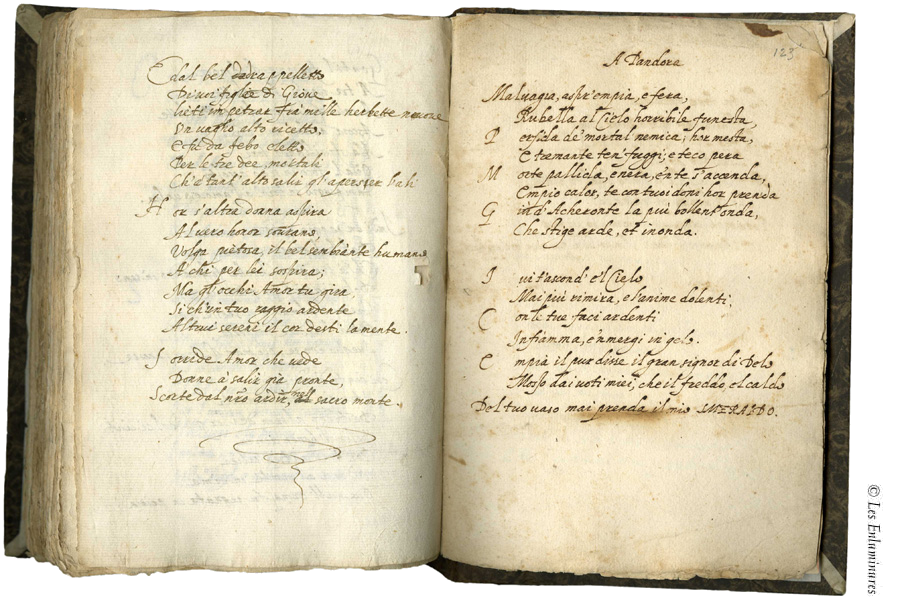 E dal bel drappelletto
Di voi figlie di Giove
lieti impetrar frà mille herbette nuove
Un vagho alto ricetto,
E fù da febo eletto
Per le tre dee mortali
Ch'a tant'alto salir gl'aperser l'ali
Hor s'altra donna aspira
Al vero honor sourano,
Volga pietosa, il bel sembiante humano
A chi per lei sospira;
Ma gl'occhi Amor tu gira,
Si ch'un tuo raggio ardente
Altrui sereni il cor desti la mente.
Sorride Amor che vede
Donne à salir già pronte,
Scorte dal nrõ ardir, nell sacro monte.
123
A Pandora
Malvagia, aspr'empia, e fera,
Rubella al Cielo horribile funesta
Perfida de' mortal nemica; hor mesta,
E tremante ten' fuggi; e teco pera
Morte pallida, e nera, e'n te s'accenda,
Empio calor, te con tuoi doni hor prenda
Giù d'Acheronte la più bollent'onda,
Che stige arde, et inonda.
Ivi t'ascond' e'l Cielo
Mai più rimira, e l'anime dolenti,
Con le tue faci ardenti
Infiamma, e'nmergi in gelo.
Empia il pur disse il gran signor di Delo
Mosso dai voti miei, che il freddo, el caldo
Del tuo vaso mai prenda il mio SMERALDO.
© Les Enluminures